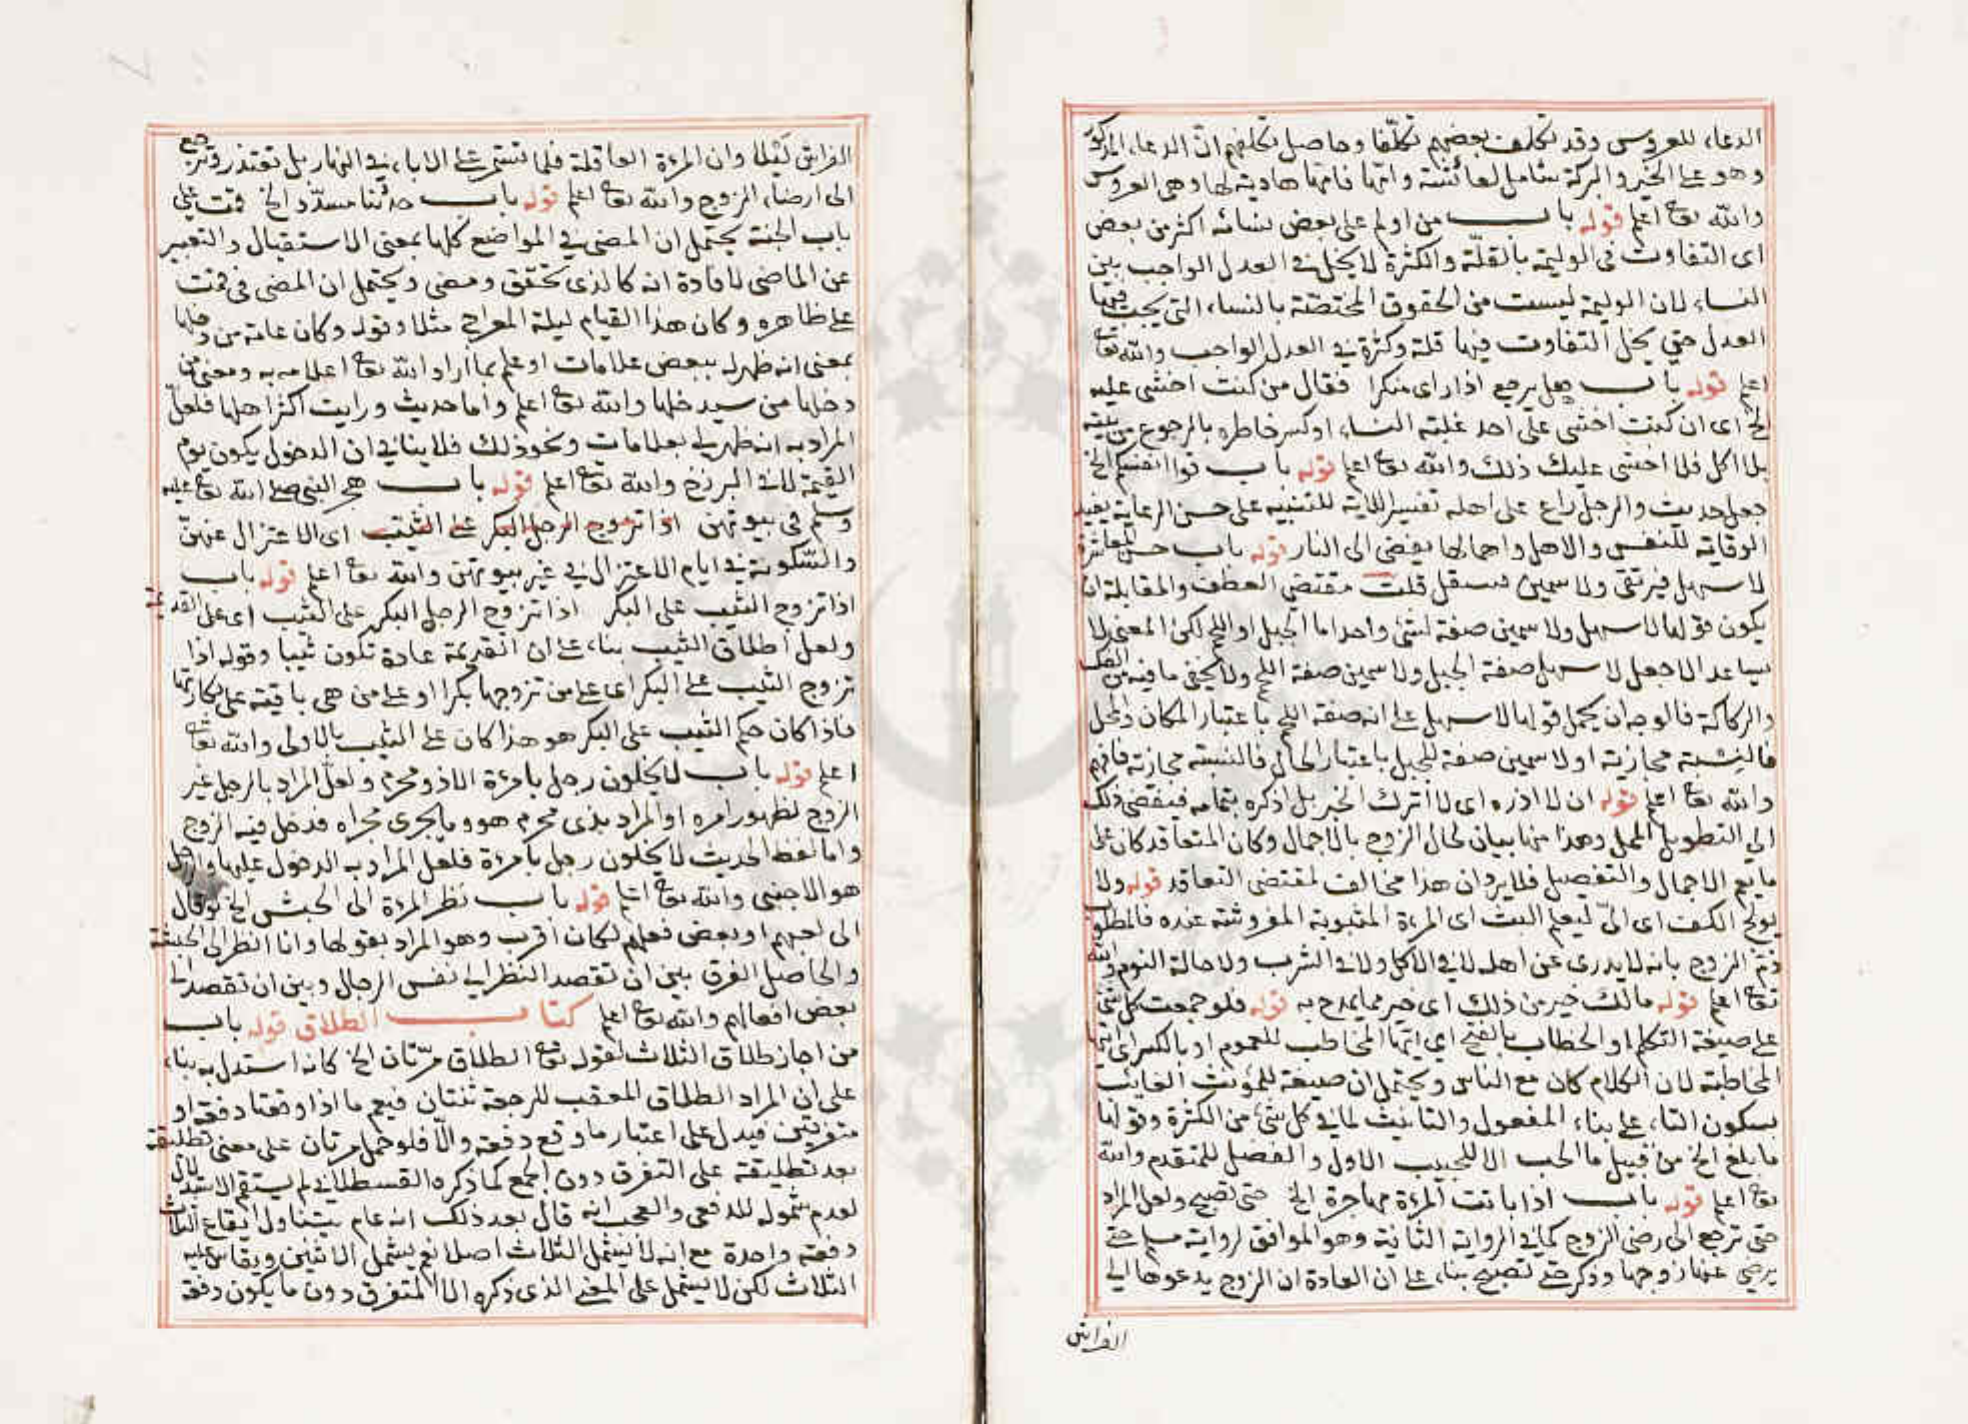 الدعاء للعروس وقد تكلف بعضهم تكلّفا وحاصل تكلفهم انّ الدعاء المذكور
وهو على الخير والبركة شامل لعائشة وامّها فامّها هادية لها وهي العروس
والله تعا اعلم قوله باب من اولم على بعض نسائه اكثر من بعض
اى التفاوت فى الوليمة بالقلّة والكثرة لا يخل فى العدل الواجب بين
النساء لان الوليمة ليست من الحقوق المختصّة بالنساء التى يجب فيها
العدل حتى يخل التفاوت فيها قلة وكثرة فى العدل الواجب والله تعا
اعلم قوله باب هل يرجع اذا راى منكرا فقال من كنت اخشى عليه
الخ اى ان كنت اخشى على احد غلبة النساء او كسر خاطره بالرجوع من بيته
بلا اكل فلا اخشى عليك ذلك والله تعا اعلم قوله باب قوا انفسكم الخ
جعل حديث والرجل راع على اهله تفسيرا للاية للتنبيه على حسن الرعاية يفيد
الوقاية للنفس والاهل واهمالها يفضى الى النار قوله باب حسن المعاشرة
لا سهل فيرتقى ولا سمين فينتقل قلت مقتضى العطف والمقابلة ان
يكون قولها لا سهل ولا سمين صفة لشئ واحد اما الجبل او اللحم لكن المعنى لا
يساعد الا جعل لا سهل صفة الجبل ولا سمين صفة اللحم ولا يخفى ما فيه من الفك
والركاكة فالوجه ان يجعل قولها لا سهل على انه صفة اللحم باعتبار المكان والمحل
فالنسبة مجازية او لا سمين صفة للجبل باعتبار الحال فالنسبة مجازية فافهم
والله تعا اعلم قوله ان لا اذره اى لا اترك الخبر بل اذكره بتمامه فيفضى ذلك
الى التطويل الممل وهذا منها بيان لحال الزوج بالاجمال وكان المتعاقد كان على
ما يعم الاجمال والتفصيل فلا يرد ان هذا مخالف لمقتضى التعاقد قوله ولا
يولج الكف اى الىّ ليعلم البث اى المرءة المفروشة عنده فالمطلوب
ذم الزوج بانه لا يدرى عن اهله لا فى الاكل ولا فى الشرب ولا حالة النوم والله
تعا اعلم قوله مالك خير من ذلك اى خير مما يمدح به قوله فلو جمعت كل شئ
على صيغة التكلم او الخطاب بالفتح اى ايّها المخاطب للعموم او بالكسر اى ايتها
المخاطبة لان الكلام كان مع الناس ويحتمل ان صيغة للمؤنث الغائب
بسكون التاء على بناء المفعول والتانيث لما فى كل شئ من الكثرة وقولها
ما بلغ الخ من قبيل ما الحب الا للحبيب الاول والفضل للمتقدم والله
تعا اعلم قوله باب اذا باتت المرءة مهاجرة الخ حتى تصبح ولعل المراد
حتى ترجع الى رضى الزوج كما فى الرواية الثانية وهو الموافق لرواية مسلم حتى
يرضى عنها زوجها وذكر حتى تصبح بناء على ان العادة ان الزوج يدعوها الى
الفراش
الفراش ليلا وان المرءة العاقلة قلما تستمر على الاباء فى النهار بل تعتذر وترجع
الى ارضاء الزوج والله تعا اعلم قوله باب حدثنا مسدّد الخ قمت على
باب الجنة يحتمل ان المضى فى المواضع كلها بمعنى الاستقبال والتعبير
عن الماضى لافادة انه كالذى تحقق ومضى ويحتمل ان المضى فى قمت
على ظاهره وكان هذا القيام ليلة المعراج مثلا وقوله وكان عامة من دخلها
بمعنى انه ظهر له ببعض علامات او علم بما اراد الله تعا اعلامه به ومعنى من
دخلها من سيدخلها والله تعا اعلم واما حديث ورايت اكثر اهلها فلعلّ
المراد به انه ظهر لى بعلامات ونحو ذلك فلا ينافى ان الدخول يكون يوم
القيمة لا فى البرزخ والله تعا اعلم قوله باب هجر النبى صلى الله تعا عليه
وسلم فى بيوتهن اذا تزوج الرجل البكر على الثيب اى الاعتزال عنهنّ
والسّكونة فى ايام الاعتزال فى غير بيوتهن والله تعا اعلم قوله باب
اذا تزوج الثيب على البكر اذا تزوج الرجل البكر على الثيب اى على القديمة
ولعل اطلاق الثيب بناء على ان القديمة عادة تكون ثيبا وقوله اذا
تزوج الثيب على البكر اى على من تزوجها بكرا او على من هى باقية على بكارتها
فاذا كان حكم الثيب على البكر هو هذا كان على الثيب بالاولى والله تعا
اعلم قوله باب لا يخلون رجل بامرءة الا ذو محرم ولعلّ المراد بالرجل غير
الزوج لظهور امره او المراد بذى محرم هو وما يجرى مجراه فدخل فيه الزوج
واما لفظ الحديث لا يخلون رجل بامرءة فلعل المراد به الدخول عليها والرجل
هو الاجنبى والله تعا اعلم قوله باب نظر المرءة الى الحبش الخ لو قال
الى لعبهم او بعض فعلهم لكان اقرب وهو المراد بقولها وانا انظر الى الحبشة
والحاصل الفرق بين ان تقصد النظر الى نفس الرجال وبين ان تقصد الى
بعض افعالهم والله تعا اعلم كتاب الطلاق قوله باب
من اجاز طلاق الثلاث لقوله تعا الطلاق مرّتان الخ كانه استدل به بناء
على ان المراد الطلاق المعقب للرجعة ثنتان فيعم ما اذا وقعتا دفعة او
متفرقتين فيدل على اعتبار ما وقع دفعة والّا فلو حمل مرتان على معنى تطليقة
بعد تطليقة على التفرق دون الجمع كما ذكره القسطلانى لم يستقم الاستدلال
لعدم شموله للدفعى والعجب انه قال بعد ذلك انه عام يتناول ايقاع الثلاث
دفعة واحدة مع انه لا يشمل الثلاث اصلا نعم يشمل الاثنين ويقاس عليه
الثلاث لكن لا يشمل على المعنى الذى ذكره الا المتفرق دون ما يكون دفعة